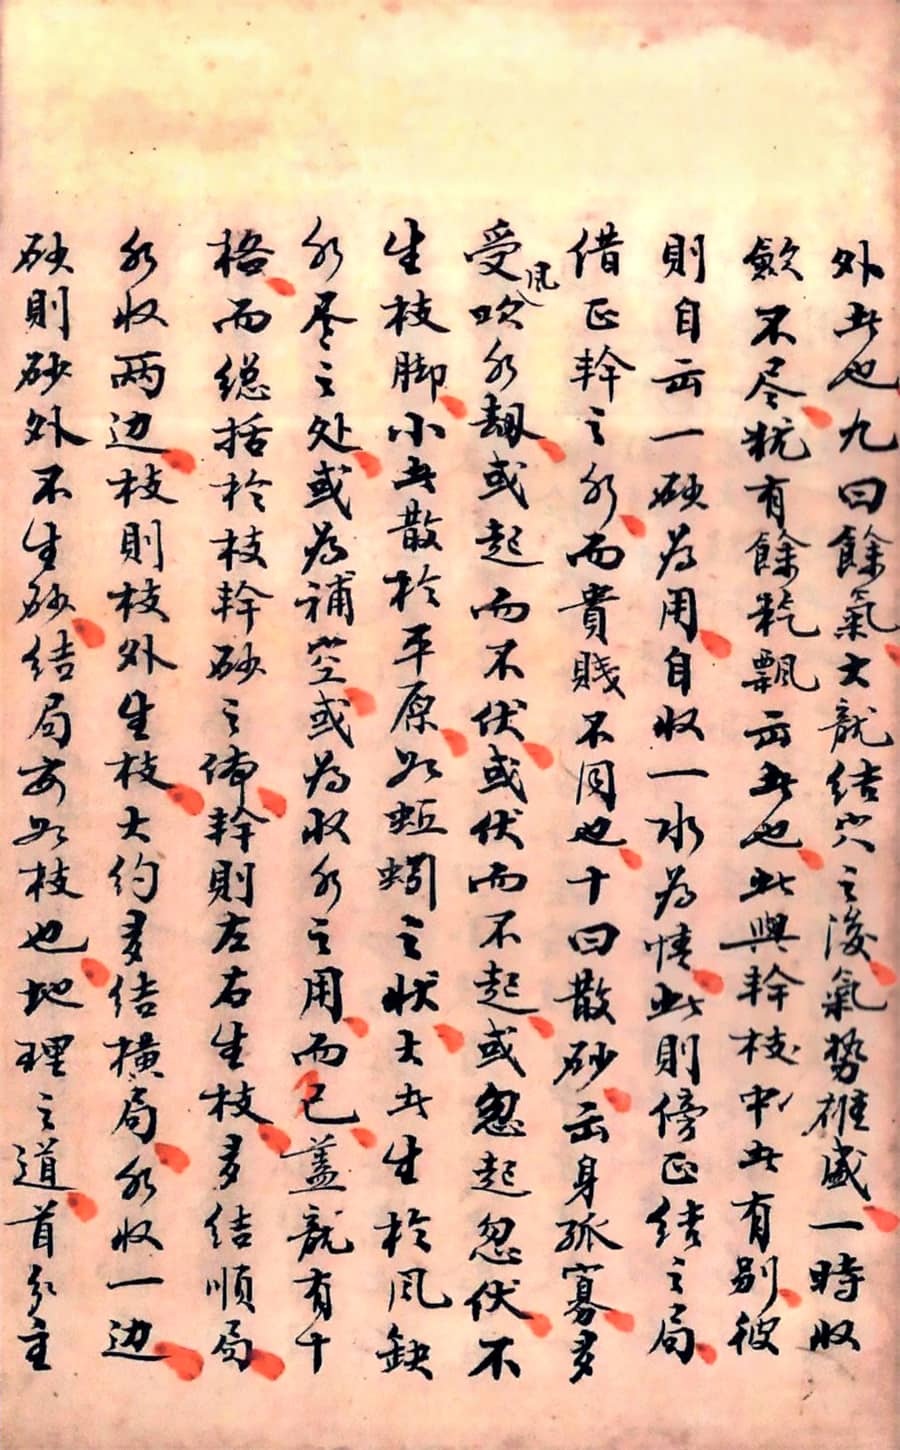 外者也九曰餘氣大龍結穴之後氣势雄盛一時收
歛不尽犹有餘𥘉飄云者也此與幹枝中者有别彼
則自云一砂為用自收一水為情此則傍正結之局
借正幹之水而貴賤不同也十曰散砂云身孤寡多
受風吹水刼或起而不伏或伏而不起或忽起忽伏不
生枝脚小者散於平原如蚯蚓之状大者生於风缺
水尽之处或為補空或為收水之用而已盖龍有十
格而緫括於枝幹砂之体幹則左右生枝多結順局
水收两边枝則枝外生枝大约多結横局水收一边
砂則砂外不生砂結局亦如枝也地理之道首分主